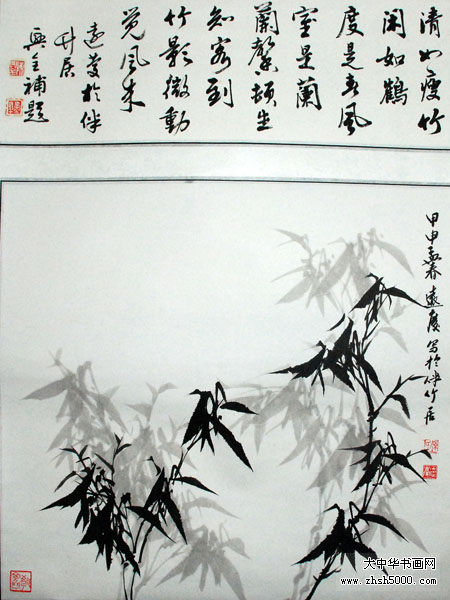 清如瘦竹
闲如鶴
座是春風
室是蘭
蘭馨頓生
知客到
竹影微動
覺風來
遠度於伴
竹居
興至補題
甲申孟春遠度写於伴竹居
大中华书画网
www.zhsh5000.com